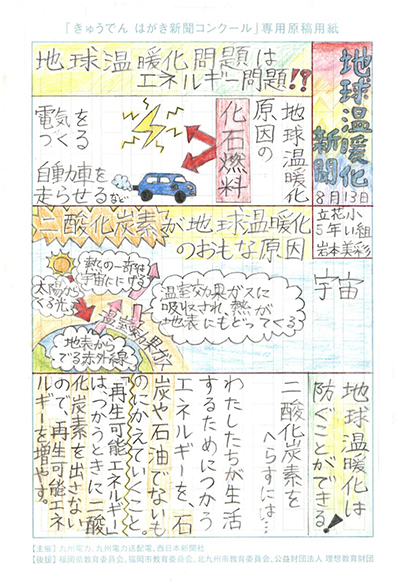 「きゅうでん はがき新聞コンクール」専用原稿用紙
地球温暖化新聞
8月13日
立花小
5年い組
岩本美彩
地球温暖化問題は
エネルギー問題!?
地球温暖化
原因の
化石燃料
電気を
つくる
自動車を
走らせる など
二酸化炭素が地球温暖化
のおもな原因
宇宙
太陽から
くる光
熱の一部は
宇宙ににげる
温室効果ガス
温室効果ガスに
吸収され、熱が
地表にもどってくる
地表から
でる赤外線
地球温暖化は
防ぐことができる!
二酸化炭素を
へらすには…
わたしたちが生活
するためにつかう
エネルギーを、石
炭や石油でないも
のにかえていくこと
「再生可能エネルギー」
は、つかうときに二酸
化炭素を出さない
ので、再生可能エネ
ルギーを増やす。
【主催】九州電力、九州電力送配電、西日本新聞社
【後援】福岡県教育委員会、福岡市教育委員会、北九州市教育委員会、公益財団法人 理想教育財団